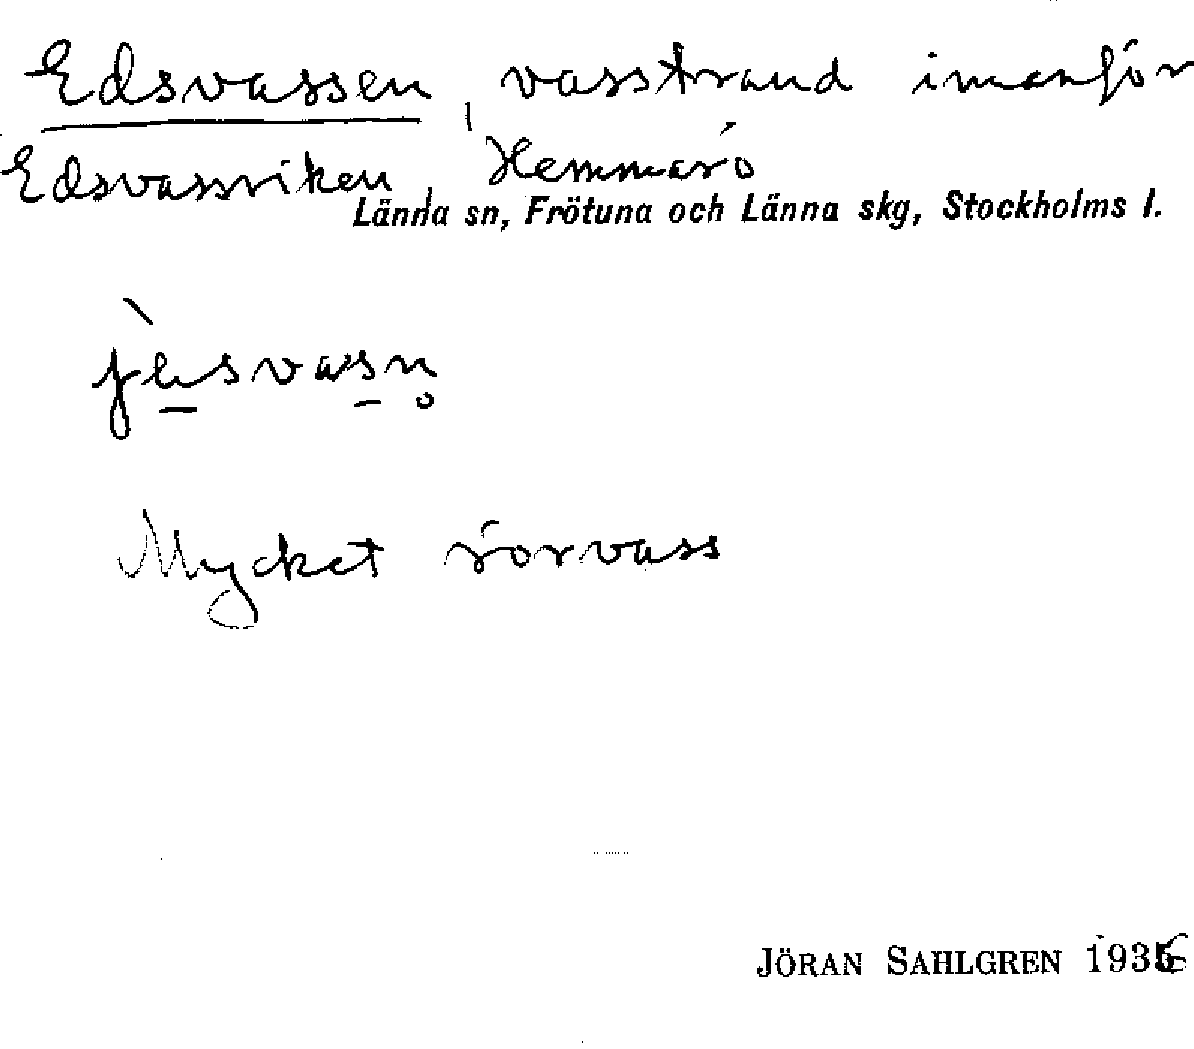 Edsvassen, vasstrand innanför
Edsvassviken, Hemmarö
Länna sn, Frötuna och Länna skg, Stockholms l.
Mycket rörvass
JÖRAN SAHLGREN 1936